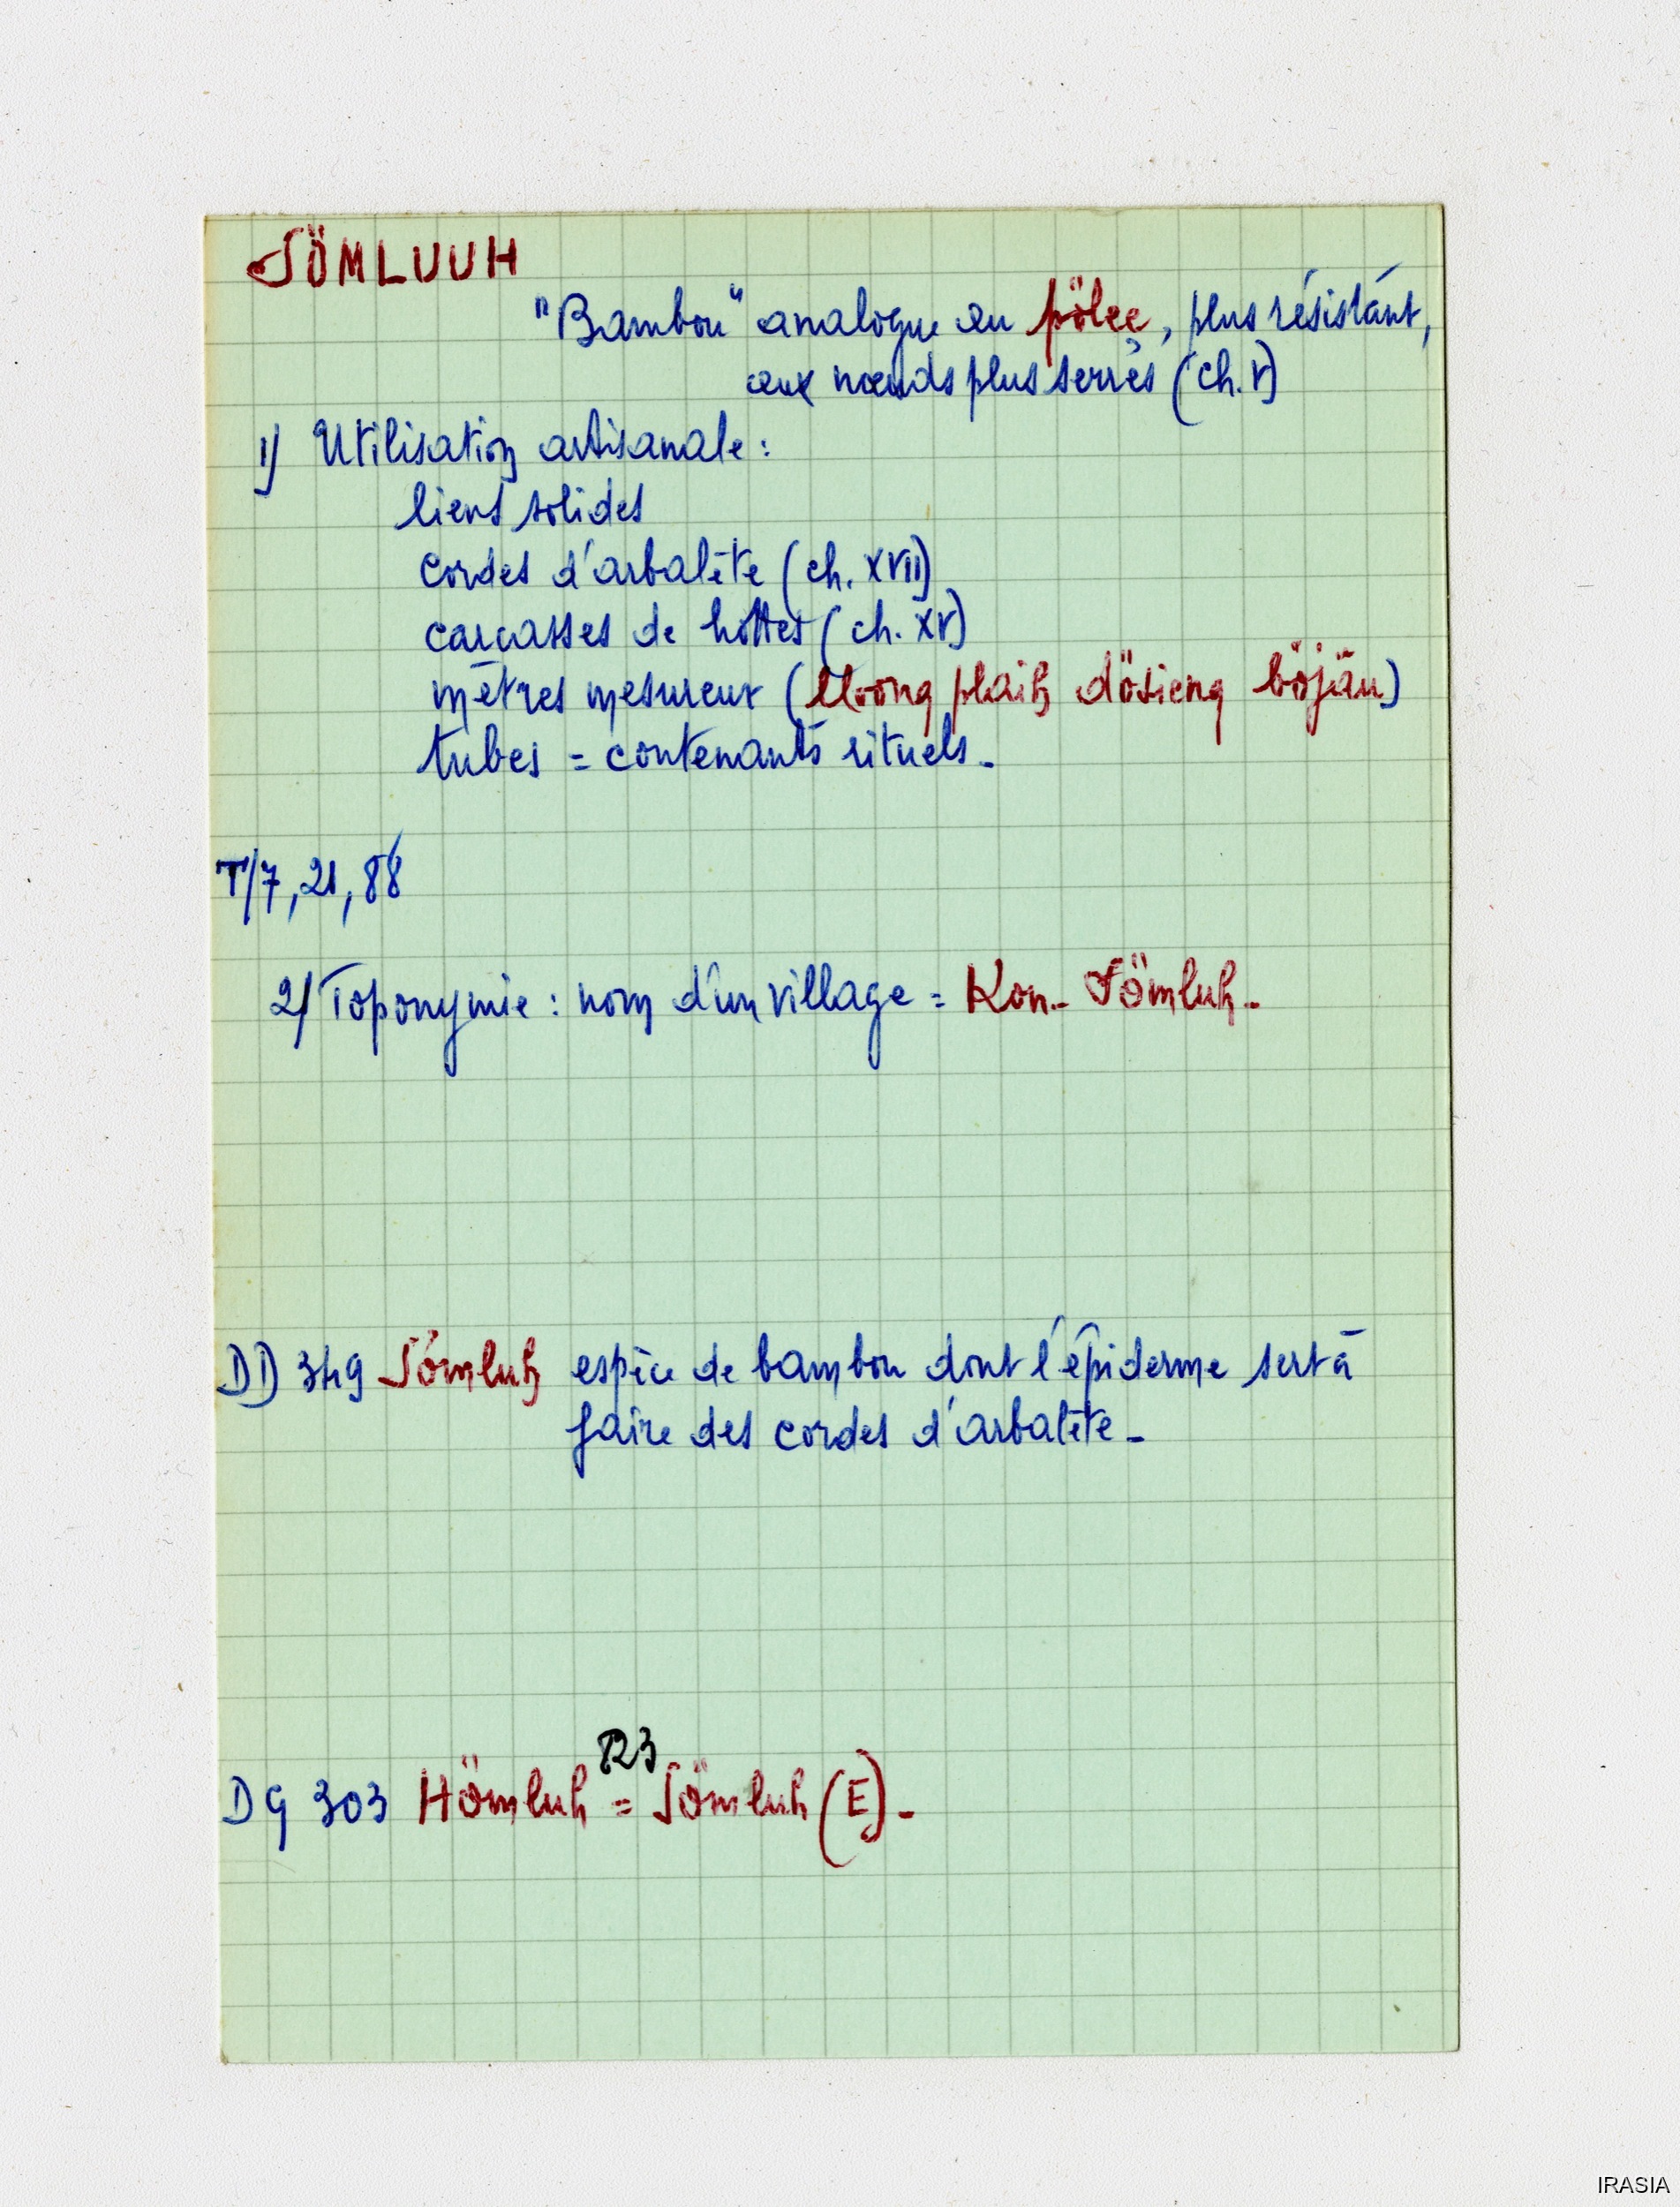 SÖMLUUH
"Bambou" analogue au pölee, plus résistant,
aux nœuds plus serrés (ch. V)
1) Utilisation artisanale :
liens solides
cordes d'arbalète (ch. XVII)
carcasses de hottes (ch. XV)
mètres mesureur ( plaih dösieng böjâu)
tubes = contenants rituels -
T/7, 21, 88
2/ Toponymie : nom d'un village = Kon - Sömluh -
DD 349 Sömluh espèce de bambou dont l'épiderme sert à
faire des cordes d'arbalète -
R3
DG 303 Hömluh = Sömluh (E) -
IRASIA